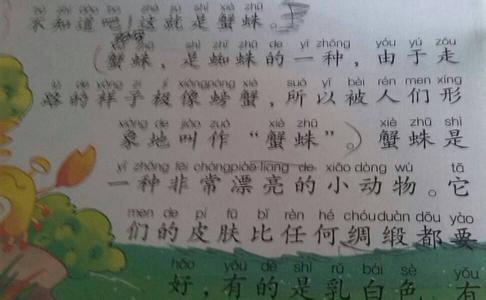 zhī dào ba zhè jiù shì xiè zhū
不知道吧！这就是蟹蛛。
shì zhī zhū de yī zhǒng yóu yú zǒu
蟹蛛，是蜘蛛的一种，由于走
lù de yàng zi jí xiàng páng xiè suǒ yǐ bèi rén men xíng
路的样子极像螃蟹，所以被人们形
xiàng de jiào zuò xiè zhū xiè zhū shì
象地叫作“蟹蛛”。蟹蛛是
yī zhǒng fēi cháng piào liang de xiǎo dòng wù tā
一种非常漂亮的小动物。它
men de pí fū bǐ rèn hé chóu duàn dōu yào
们的皮肤比任何绸缎都要
hǎo yǒu de shì rǔ bái sè yǒu
好，有的是乳白色，有